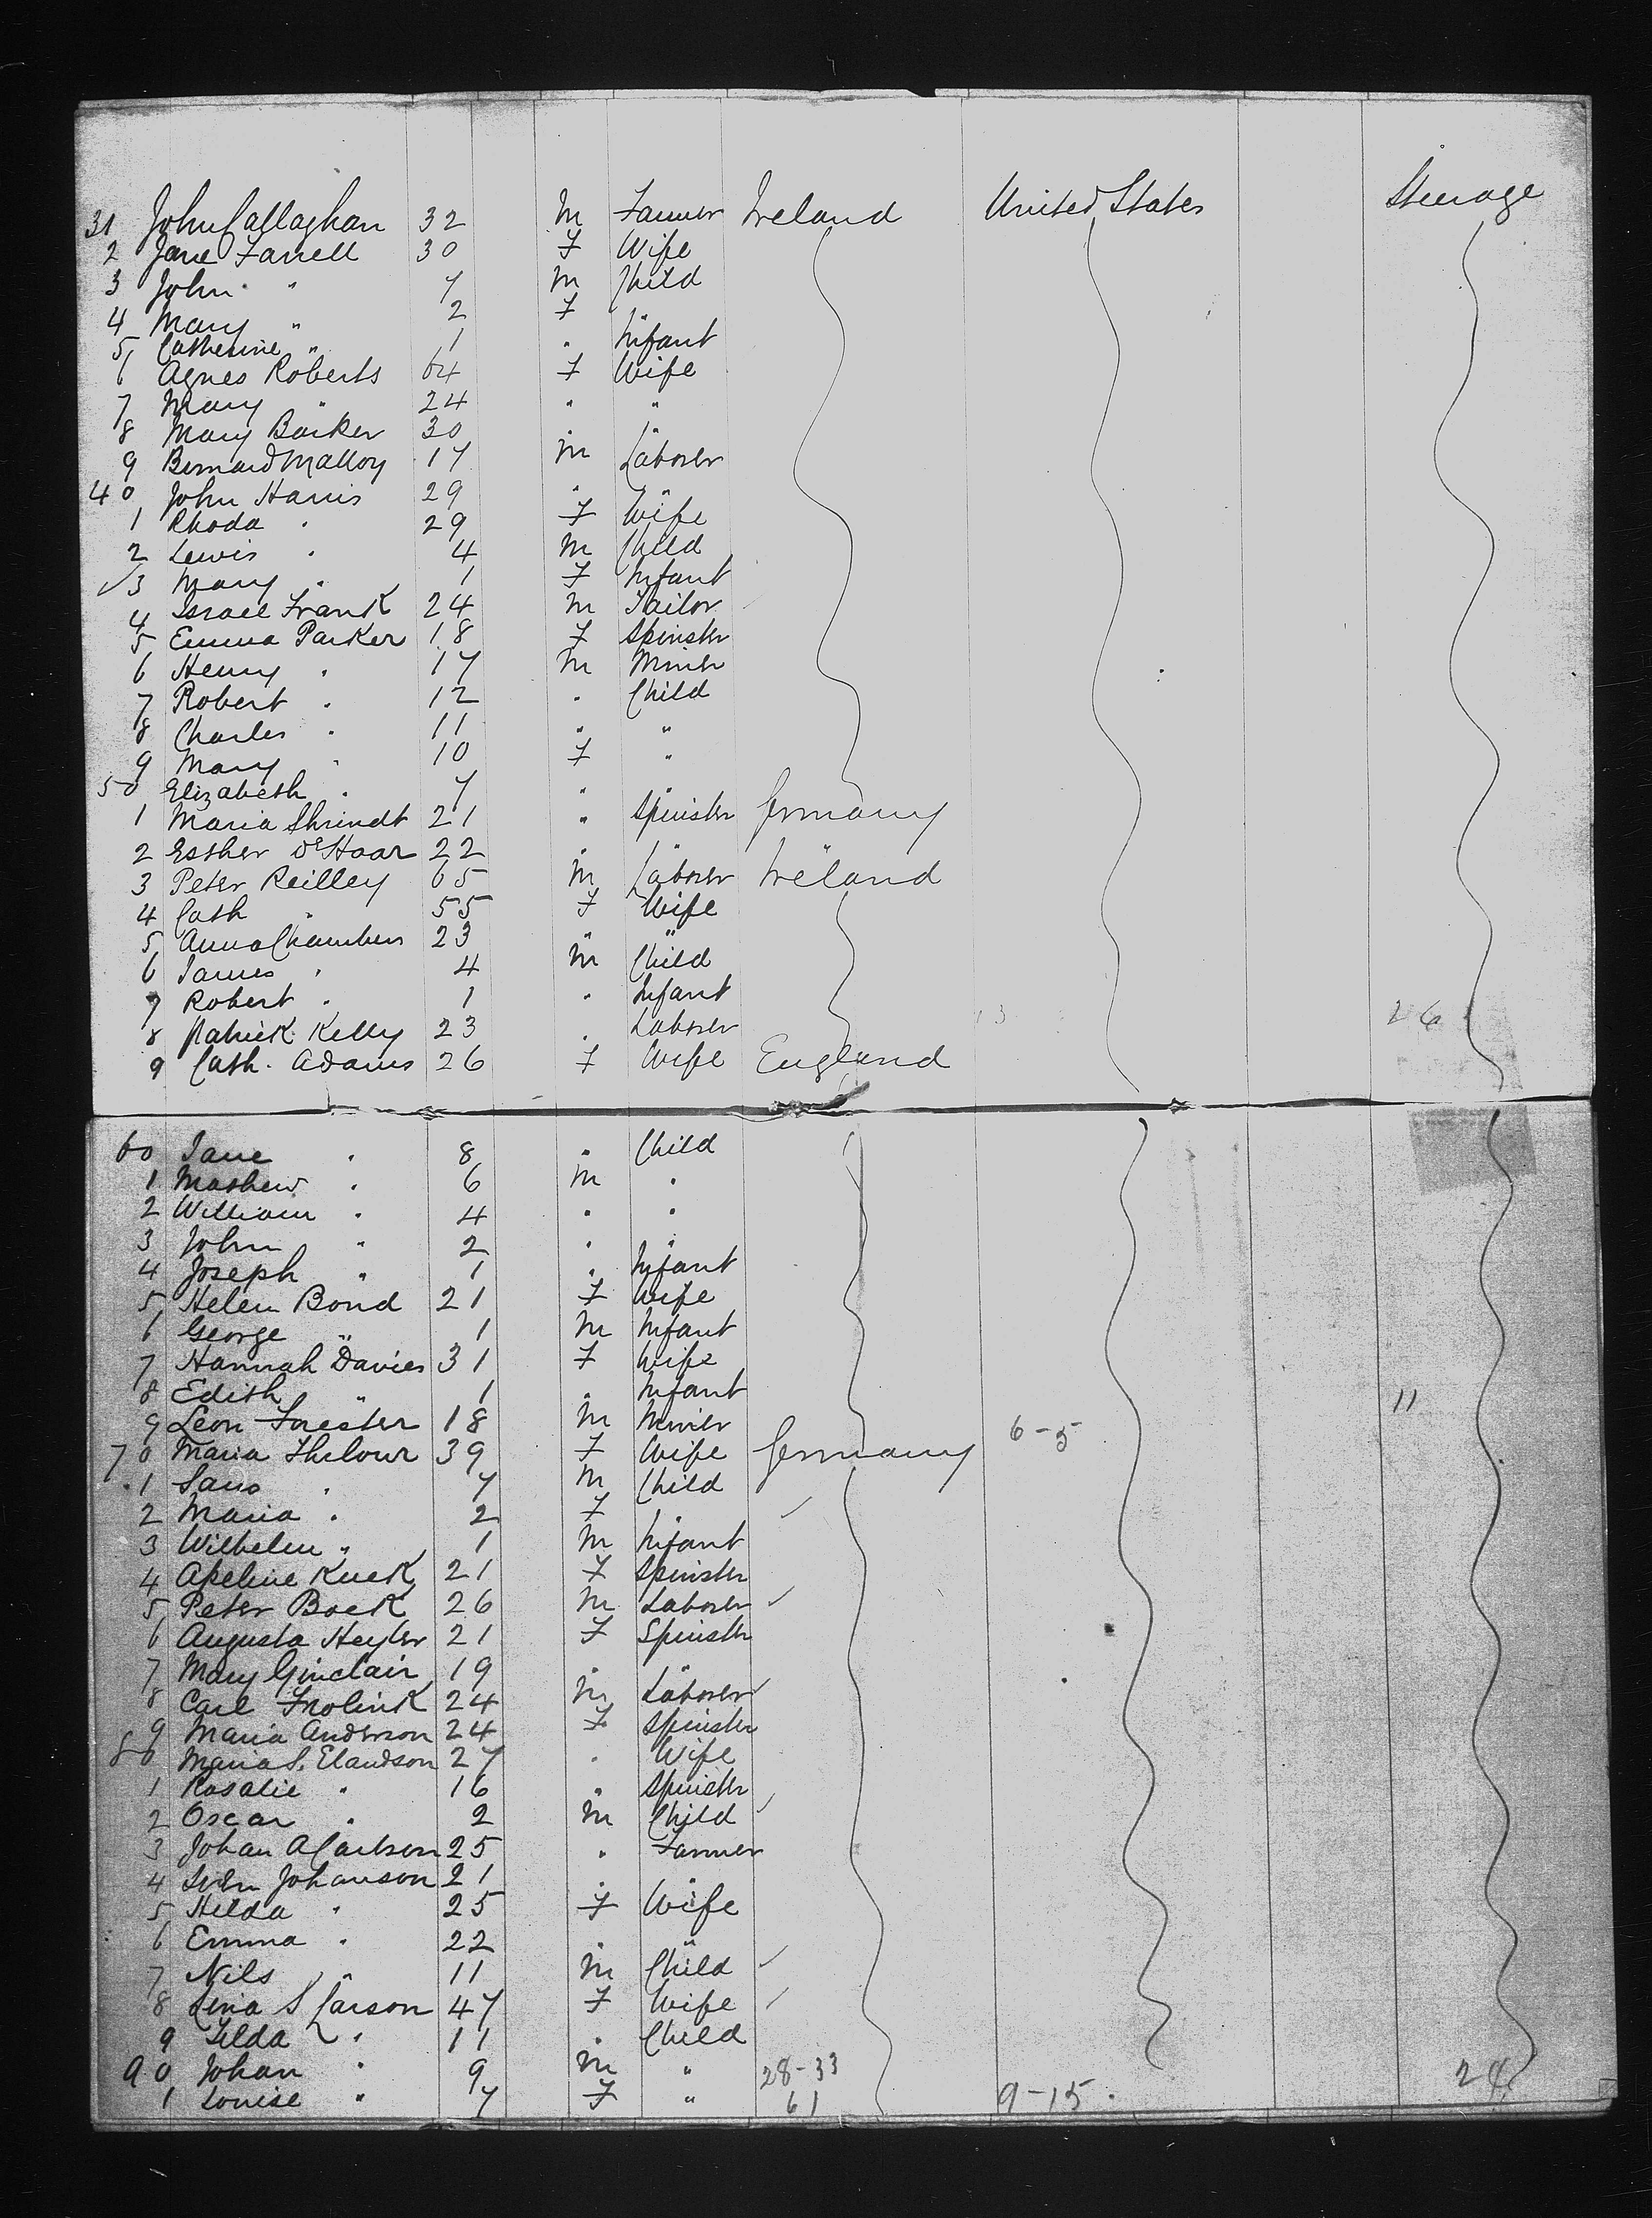 31 John Callaghan 32 M Farmer Ireland United States Steerage
2 Jane Farrell 30 F Wife
3 John " 7 M Child
4 Mary " 2 F "
5 Catherine " 1 " Infant
6 Agnes Roberts 64 F Wife
7 Mary " 24 " "
8 Mary Barker 30 " "
9 Bernard Malloy 17 M Laborer
40 John Harris 29 " "
1 Rhoda " 29 F Wife
2 Lewis " 4 M Child
3 Mary " 1 F Infant
4 Israel Frank 24 M Tailor
5 Emma Parker 18 F Spinster
6 Henry " 17 M Miner
7 Robert " 12 " Child
8 Charles " 11 " "
9 Mary " 10 F "
50 Elizabeth " 7 " "
1 Maria Shrindt 21 " Spinster Germany
2 Esther DeHaar 22 " " "
3 Peter Reilley 65 M Laborer Ireland
4 Cath " 55 F Wife
5 Anna Chambers 23 " "
6 James " 4 M Child
7 Robert " 1 " Infant
8 Patrick Kelly 23 " Laborer 13 26
9 Cath. Adams 26 F Wife England
60 Jane " 8 " Child
1 Mathew " 6 M "
2 William " 4 " "
3 John " 2 " "
4 Joseph " 1 " Infant
5 Helen Bond 21 F Wife
6 George " 1 M Infant
7 Hannah Davies 31 F Wife
8 Edith " 1 " Infant 11
9 Leon Forester 18 M Miner 6-5
70 Maria 39 F Wife Germany
1 " 7 M Child
2 Maria " 2 F "
3 Wilhelm " 1 M Infant
4 Apeline Kuck 21 F Spinster
5 Peter Bock 26 M Laborer
6 Augusta Heyler 21 F Spinster
7 Mary Ginclair 19 " "
8 Carl Frolink 24 M Laborer
9 Maria Anderson 24 F Spinster
80 Maria S. Elandson 27 " Wife
1 Rosalie " 16 " Spinster
2 Oscar " 2 M Child
3 Johan A Carlson 25 " Farmer
4 Sven Johanson 21 " "
5 Hilda " 25 F Wife
6 Emma " 22 " "
7 Nils " 11 M Child
8 Lina S Carson 47 F Wife
9 Tilda " 11 " Child
90 Johan " 9 M " 28-33 24
1 Louise " 7 F " 61 9-15